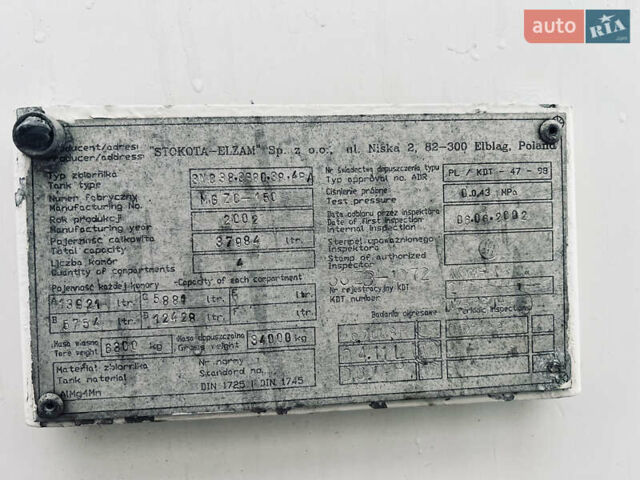 auto RIA
.com
Producent/adres
Producer/address "STOKOTA-ELZAM" Sp. z o.o., ul. Niska 2, 82-300 Elbląg, Poland
Typ zbiornika
Tank type
Numer fabryczny
Manufacturing No.
Rok produkcji 2002
Manufacturing year
Pojemność całkowita 37984 ltr.
Total capacity
Liczba komór 4
Quantity of compartments
Pojemność każdej komory -Capacity of each compartment
A ltr. C ltr. E ltr.
B ltr. D 12428 ltr. F ltr.
Masa własna kg Masa dopuszczalna 34000 kg
Tare weight Gross weight
Materiał zbiornika Nr normy
Tank material Standard no.
AlMg4Mn DIN 1725 i DIN 1745
Nr świadectwa dopuszczenia typu PL / KDT - 47 - 99
Typ approval no. ADR
Ciśnienie próbne MPa
Test pressure
Data odbioru przez inspektora 06.06.2002
Date of first inspection
Internal inspection
Stempel upoważnionego
Inspektora
Stamp of authorized
Inspector
Nr rejestracyjny KDT
KDT number
Badania okresowe Periodic inspections